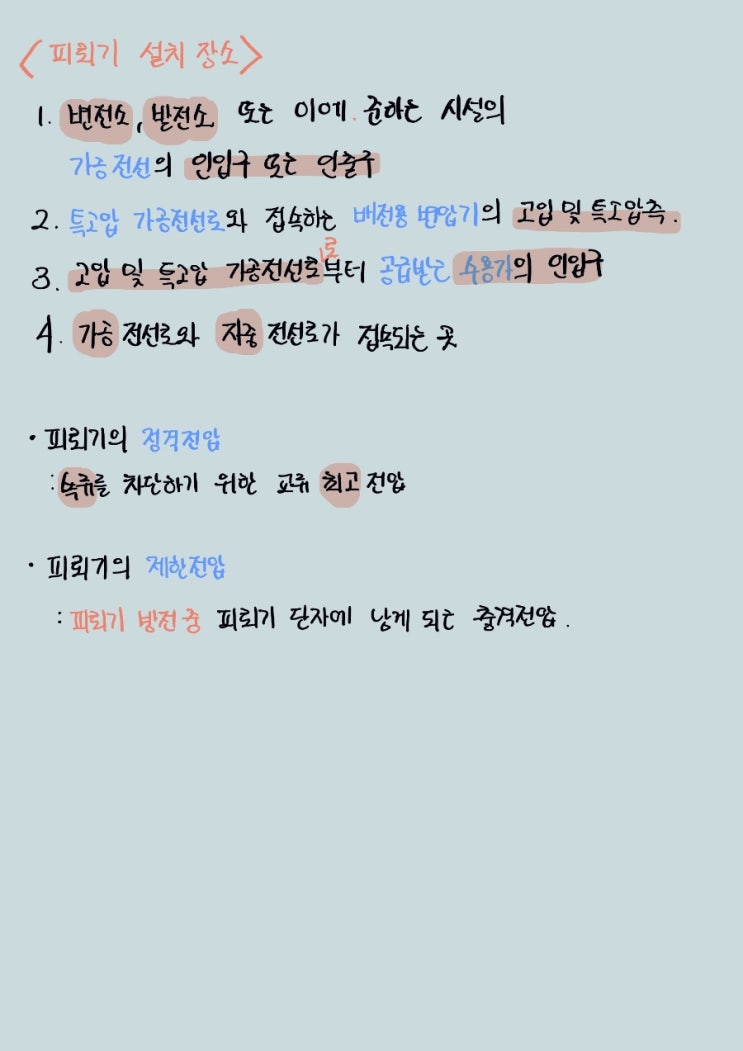 <피뢰기 설치 장소>
1. 변전소, 발전소 또는 이에 준하는 시설의
가공전선의 인입구 또는 인출구
2. 특고압 가공전선로와 접속하는 배전용 변압기의 고압 및 특고압측.
로
3. 고압 및 특고압 가공전선로부터 공급받는 수용가의 인입구
4. 가공전선로와 지중전선로가 접속되는 곳
· 피뢰기의 정격전압
: 속류를 차단하기 위한 교류 최고전압
· 피뢰기의 제한전압
: 피뢰기 방전 중 피뢰기 단자에 남게 되는 충격전압.